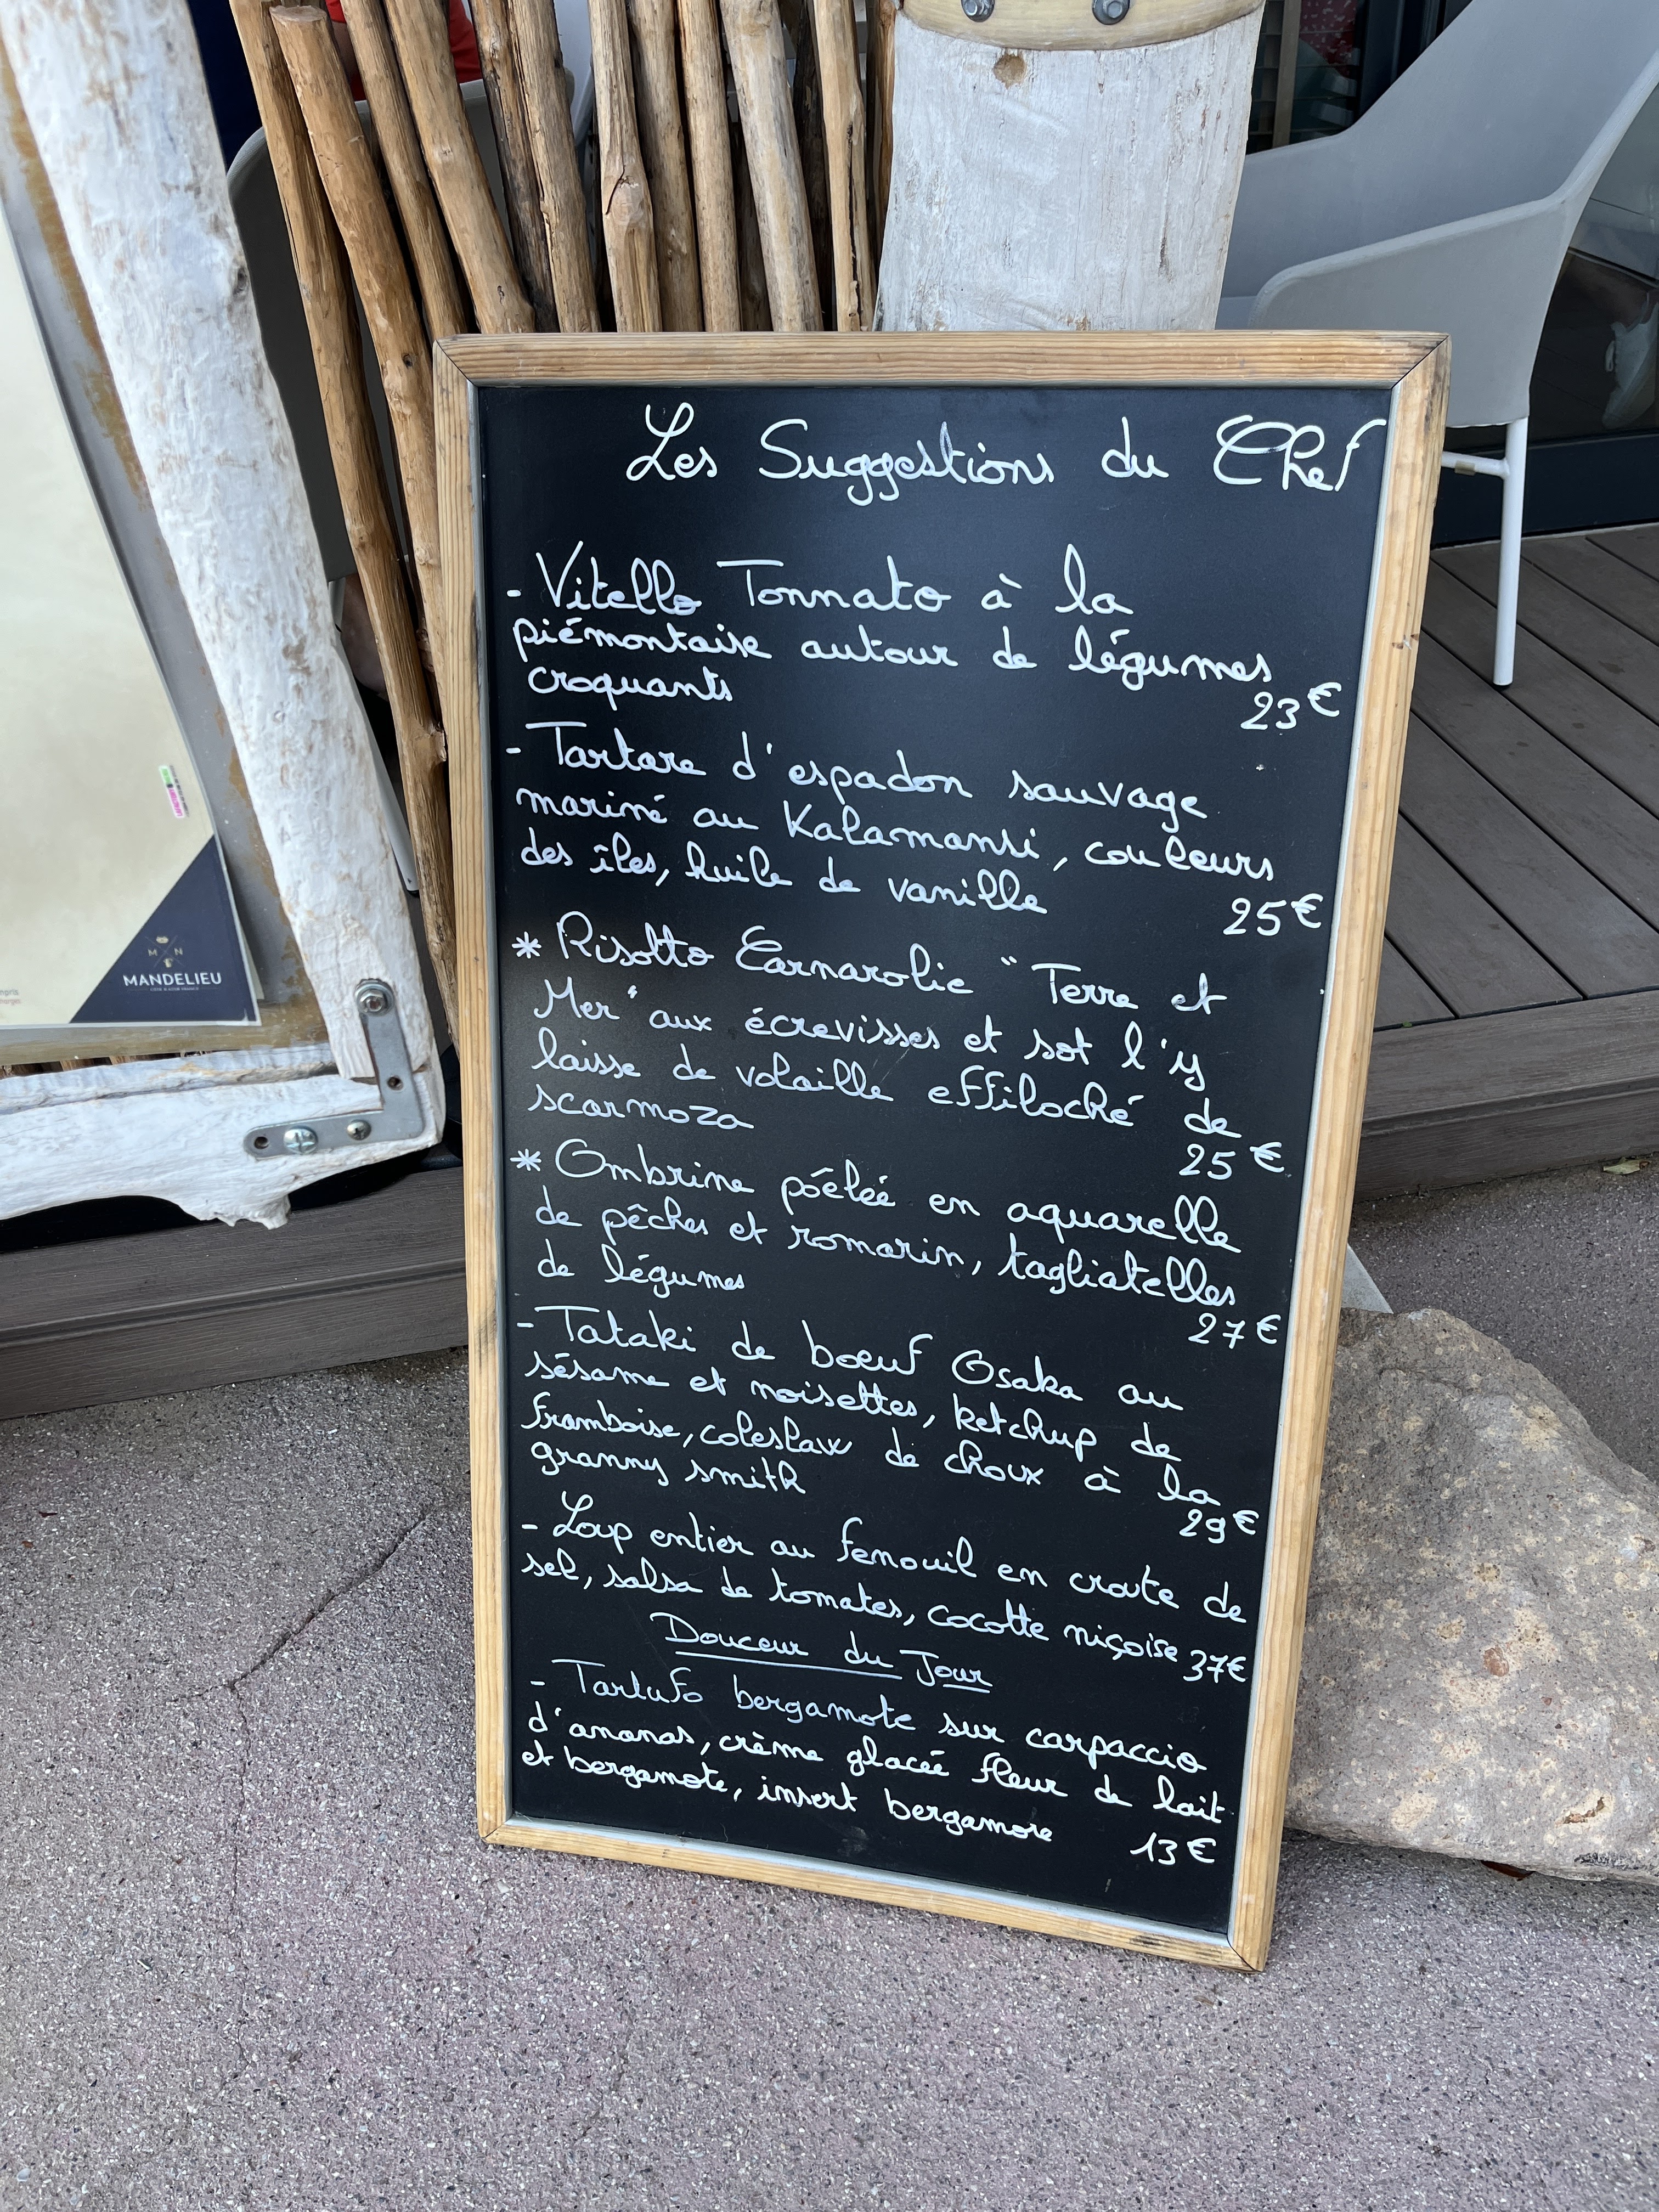 Les Suggestions du Chef
- Vitello Tonnato à la
piémontaise autour de légumes
croquants
23€
- Tartare d'espadon sauvage
mariné au Kalamansi, couleurs
des îles, huile de vanille
25€
* Risotto Carnarolie "Terre et
Mer" aux écrevisses et sot l'y
laisse de volaille effiloché de
scarmoza
25€
* Ombrine póélée en aquarelle
de pêches et romarin, tagliatelles
de légumes
27€
- Tataki de boeuf Osaka au
sésame et noisettes, ketchup de
framboise, coleslaw de choux à la
granny smith
29€
- Loup entier au fenouil en croute de
sel, salsa de tomates, cocotte niçoise 37€
Douceur du Jour
- Tartufo bergamote sur carpaccio
d'ananas, crème glacée fleur de lait
et bergamote, insert bergamore
13€
M N
MANDELIEU